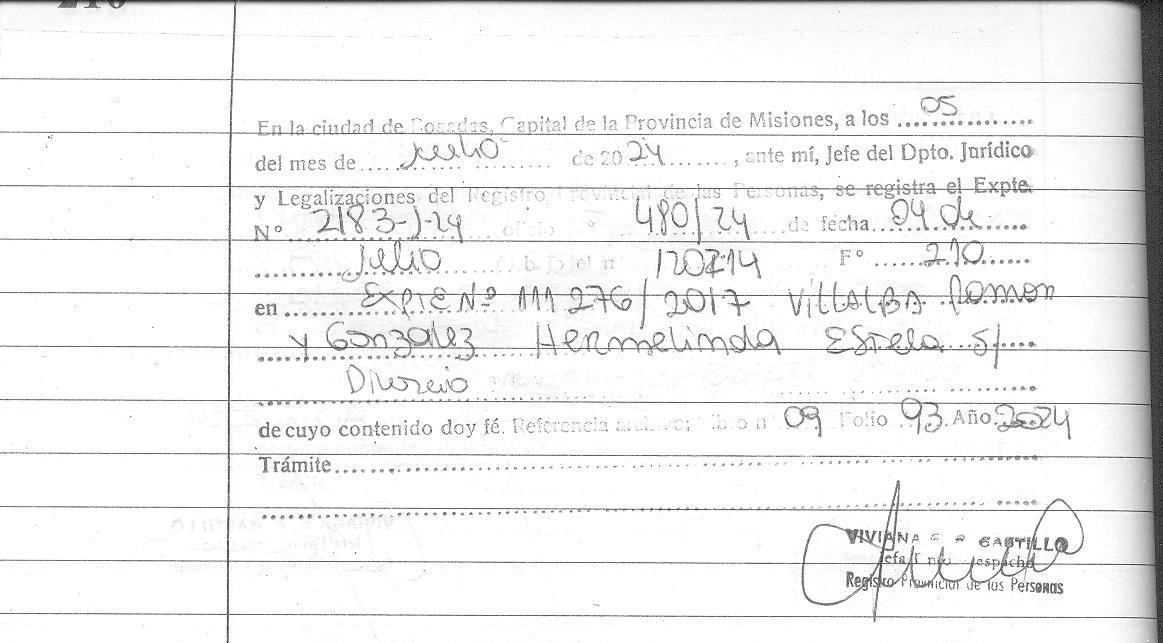 210
En la ciudad de Posadas, Capital de la Provincia de Misiones, a los 05
del mes de Julio de 2024, ante mí, Jefe del Dpto. Jurídico
y Legalizaciones del Registro Provincial de las Personas, se registra el Expte.
Nº 2183-J-24 oficio º 480/24 de fecha 04 de
Julio 120714 Fº 210
en EXPTE Nº 111 276/2017 VILLALBA Ramon
y Gonzalez Hermelinda Estela S/
Divorcio
de cuyo contenido doy fé. Referencia archivo: libro nº 09 Folio 93 Año 2024
Trámite
VIVIANA CASTILLO
Jefa Dpto Despacho
Registro Provincial de las Personas